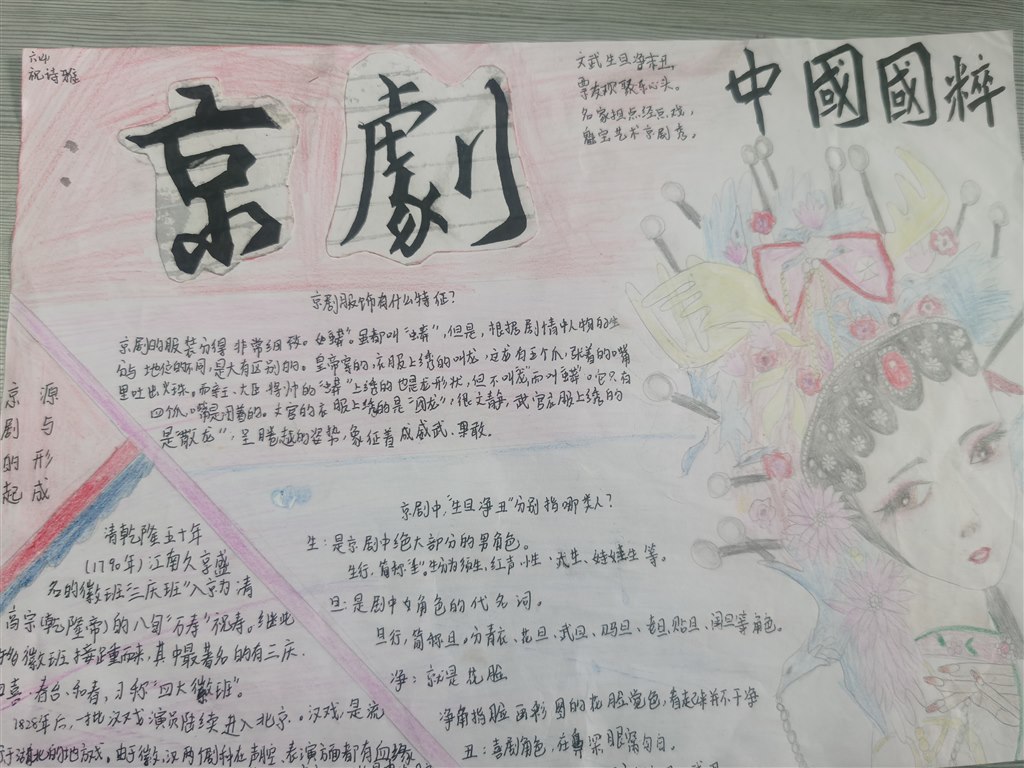 六4
祝诗雅
京劇
文武生旦净末丑,
票友欢聚在心头。
名家担点经点戏,
瑰宝艺术京剧秀,
中國國粹
京剧服饰有什么特征?
京剧的服装分得非常细致。如"蟒"。虽都叫"蟒",但是,根据剧情中人物的生
分与地位的不同,是大有区别的。皇帝穿的,衣服上绣的叫龙,这龙有五个爪,张着的嘴
里吐出火珠。而亲王、大臣得的"蟒"上绣的也是龙形状,但不叫"龙"而叫"蟒"。它只有
四个爪,嘴是闭着的。文官的衣服上绣的是"团龙",很文静,武官衣服上绣的
是"散龙",呈腾越的姿势,象征着威武、果敢.
京剧的起
源与形成
清乾隆五十年
(1790年)江南久享盛
名的徽班"三庆班"入京为清
高宗(乾隆帝)的八旬"万寿"祝寿。继此
徽班接踵而来,其中最著名的有三庆.
喜·春台、和春,习称"四大徽班"。
1828年后,一批汉戏演员陆续进入北京。汉戏是流
于湖北的地方戏。由于徽、汉两个剧种在声腔、表演方面都有血缘
京剧中,"生旦净丑"分别指哪类人?
生:是京剧中绝大部分的男角色。
生行,简称"生"。生分为须生、红声、小性、武生、娃娃生等。
旦:是剧中女角色的代名词。
旦行,简称旦。分青衣、花旦、武旦、刀马旦、老旦、贴旦、闺旦等角色。
净:就是花脸
净角指脸画彩图的花脸觉色,看起来并不干净
丑:喜剧角色,在鼻梁眼窝勾白。